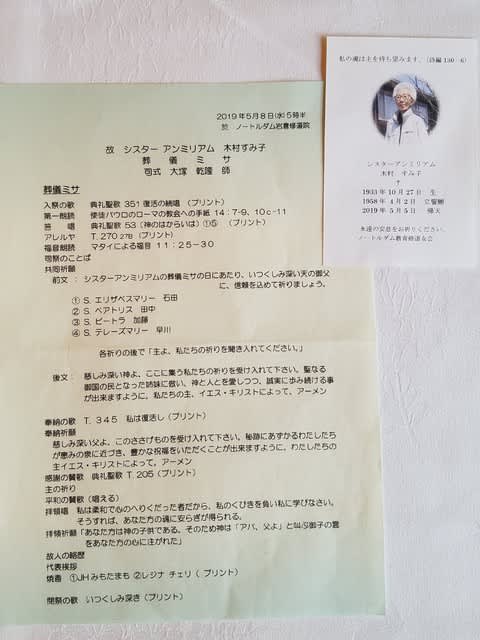 2019年5月8日(水)5時半
於 ノートルダム岩倉修道院
故 シスター アンミリアム 木村すみ子
葬儀ミサ
司式 大塚 乾隆 師
葬儀ミサ
入祭の歌 典礼聖歌 351 復活の続唱 (プリント)
第一朗読 使徒パウロのローマの教会への手紙 14:7-9、10c-11
答唱 典礼聖歌 53 (神のはからいは)①⑤ (プリント)
アレルヤ T.270 27B (プリント)
福音朗読 マタイによる福音 11:25-30
司祭のことば
共同祈願
前文:シスターアンミリアムの葬儀ミサの日にあたり、いつくしみ深い天の御父
に、信頼を込めて祈りましょう。
① S. エリザベスマリー 石田
② S. ベアトリス 田中
③ S. ピートラ 加藤
④ S. テレーズマリー 早川
各祈りの後で「主よ、私たちの祈りを聞き入れてください。」
後文:慈しみ深い神よ、ここに集う私たちの祈りを受け入れて下さい。聖なる
御国の民となった姉妹に倣い、神と人とを愛しつつ、誠実に歩み続ける事
が出来ますように、私たちの主、イエス・キリストによって、アーメン
奉納の歌 T.345 私は復活し(プリント)
奉納祈願
慈しみ深い父よ、このささげものを受け入れて下さい。秘跡にあずかるわたしたち
が恵みの泉に近づき、豊かな祝福をいただくことが出来ますように、わたしたちの
主イエス・キリストによって。アーメン
感謝の賛歌 典礼聖歌 T.205(プリント)
主の祈り
平和の賛歌(唱える)
拝領唱 私は柔和で心のへりくだった者だから、私のくびきを負い私に学びなさい。
そうすれば、あなた方の魂に安らぎが得られる。
拝領祈願「あなた方は神の子供である。そのため神は「アバ、父よ」と叫ぶ御子の霊
をあなた方の心に注がれた」
故人の略歴
代表挨拶
焼香 ①JHみもたまも ②レジナ チェリ(プリント)
閉祭の歌 いつくしみ深き(プリント)
私の魂は主を待ち望みます。(詩編130-6)
シスターアンミリアム
木村 すみ子
✝
1933年10月27日 生
1958年4月2日 立誓願
2019年5月5日 帰天
永遠の安息をお祈りください。
ノートルダム教育修道女会